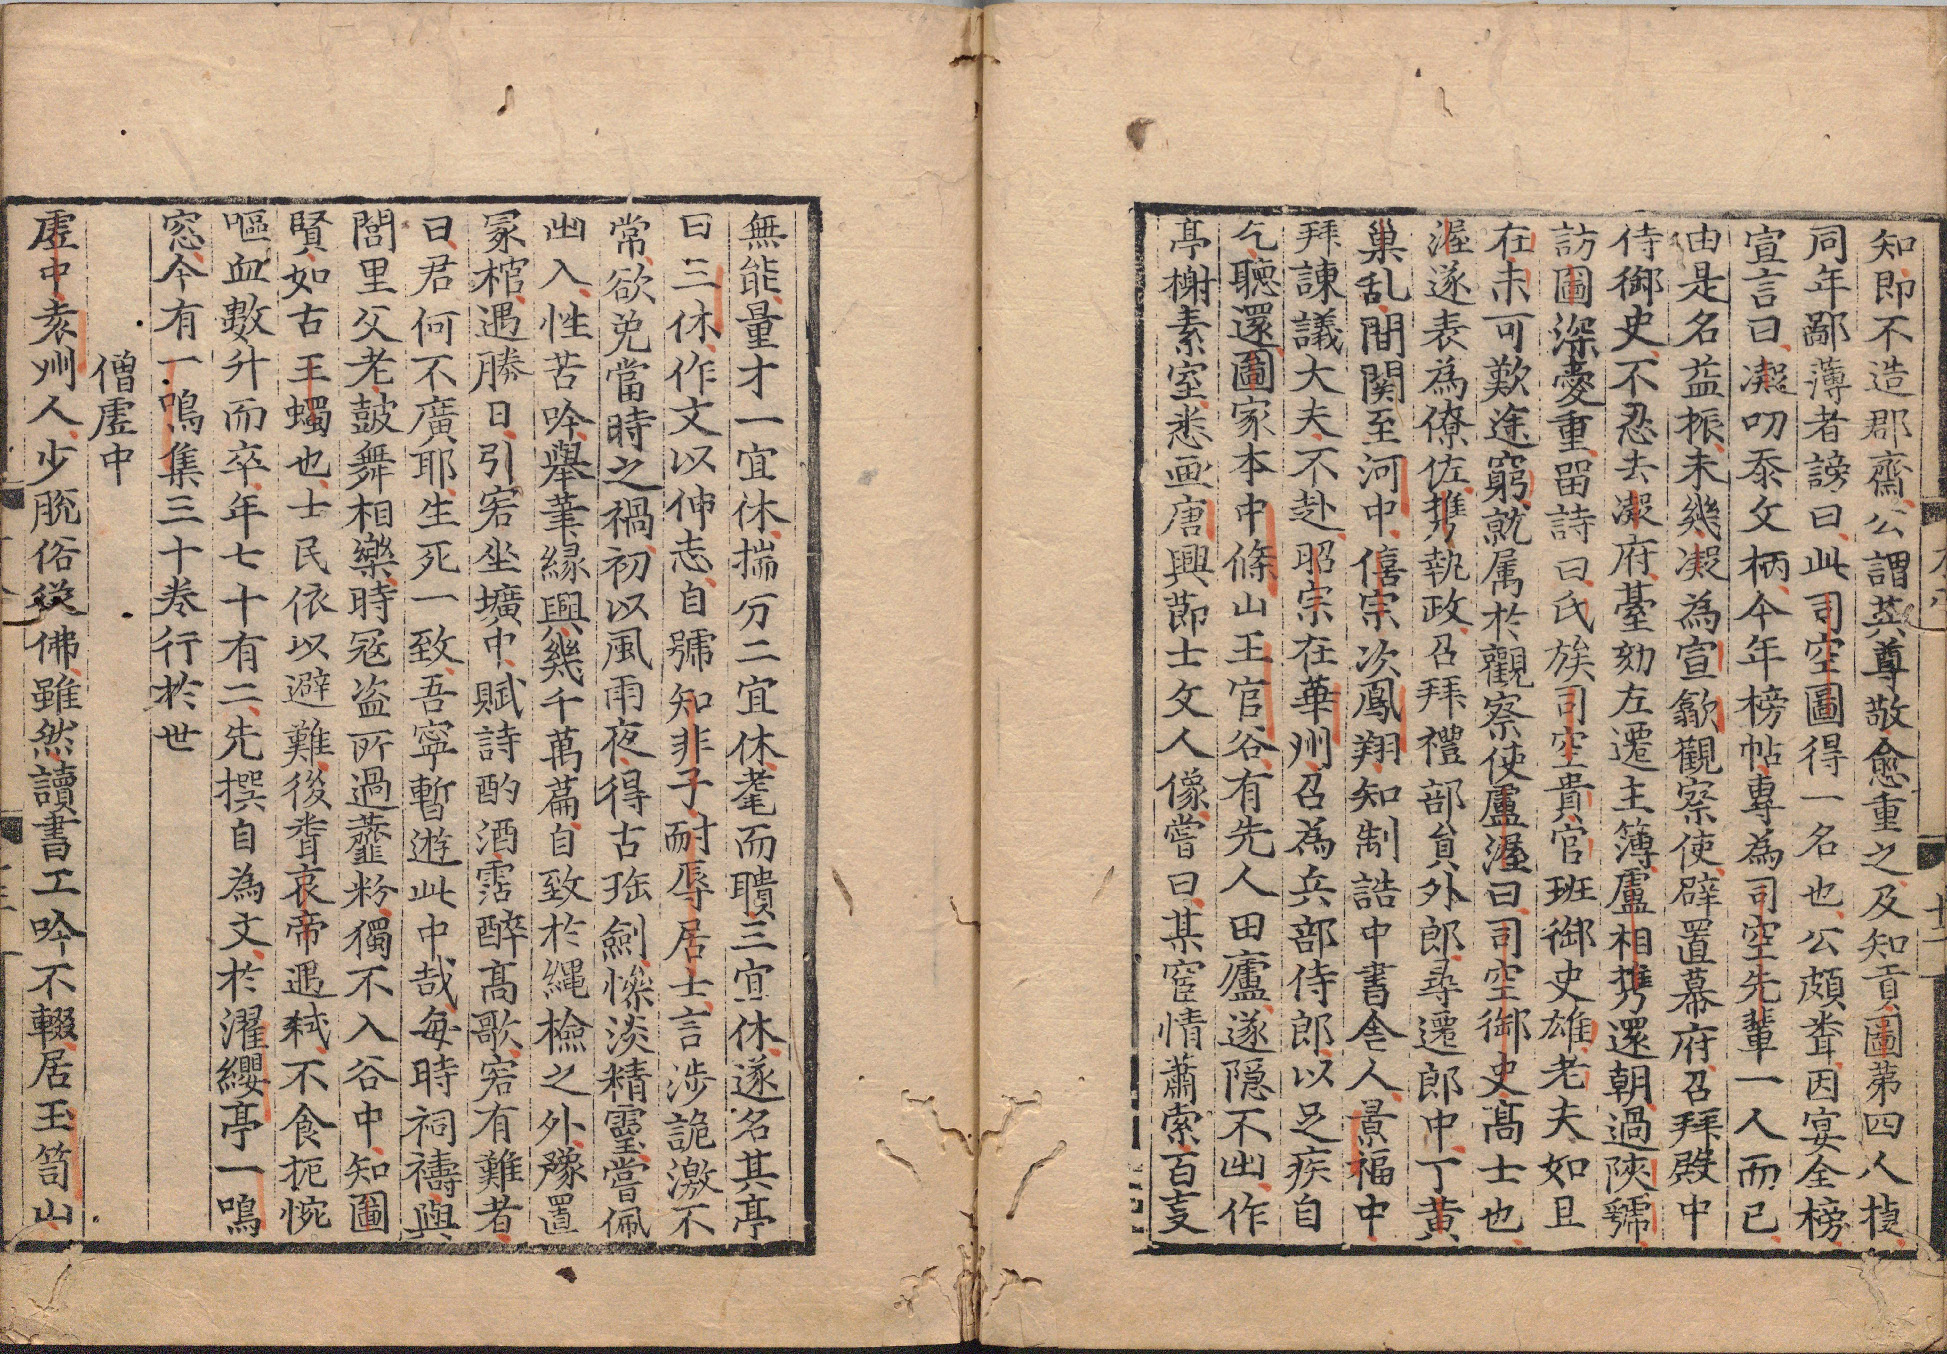 知即不造郡齋公謂英尊敬愈重之及知貢圖第四人捷
同年鄙薄者謗曰此司空圖得一名也公頗聋因宴全榜
宣言曰凝叨忝文柄今年榜帖專為司空先輩一人而已
由是名益振未幾凝為宣歙觀察使辟置幕府召拜殿中
侍御史不忍去凝府䑓劾左遷主簿盧相携還朝過陝虢
訪圖深愛重留詩曰氏族司空貴官班御史雄老夫如且
在未可歎途窮就属於觀察使盧渥曰司空御史髙士也
渥遂表為僚佐携執政召拜禮部貟外郎尋遷郎中丁黄
巢乱間関至河中僖宗次鳳翔知制誥中書舎人景福中
拜諫議大夫不赴昭宗在華州召為兵部侍郎以足疾自
乞聽還圖家本中條山王官谷有先人田廬遂隐不出作
亭榭素室悉画唐興莭士文人像嘗曰某宦情蕭索百事
無能量才一宜休揣分二宜休耄而聵三宜休遂名其亭
曰三休作文以伸志自號知非子耐辱居士言涉詭激不
常欲免當時之禍初以風雨夜得古珤劍惨淡精靈嘗佩
出入性苦吟舉筆緣興幾千萬篇自致於縄檢之外豫置
冢棺遇勝日引客坐壙中賦詩酌酒霑醉髙歌客有難者
曰君何不廣耶生死一致吾寧暫遊此中哉毎時祠禱與
閭里父老皷舞相樂時冦盗所過虀粉獨不入谷中知圖
賢如古王蠋也士民依以避難後聋哀帝遇弑不食扼惋
嘔血數升而卒年七十有二先撰自為文於濯纓亭一鳴
窓今有一鳴集三十巻行於世
僧虚中
虚中袁州人少脫俗從佛雖然讀書工吟不輟居玉笥山